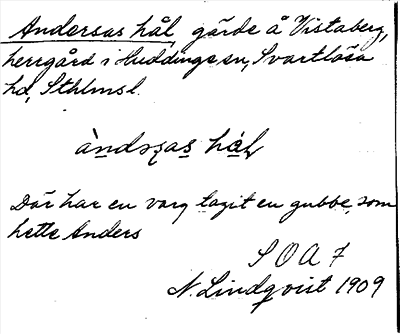 Andersas hål, gärde å Vistaberg,
herrgård i Huddinge sn, Svartlösa
hd, Sthlmsl.
Där har en varg tagit en gubbe, som
hette Anders
S O A 7
N. Lindqvist 1909